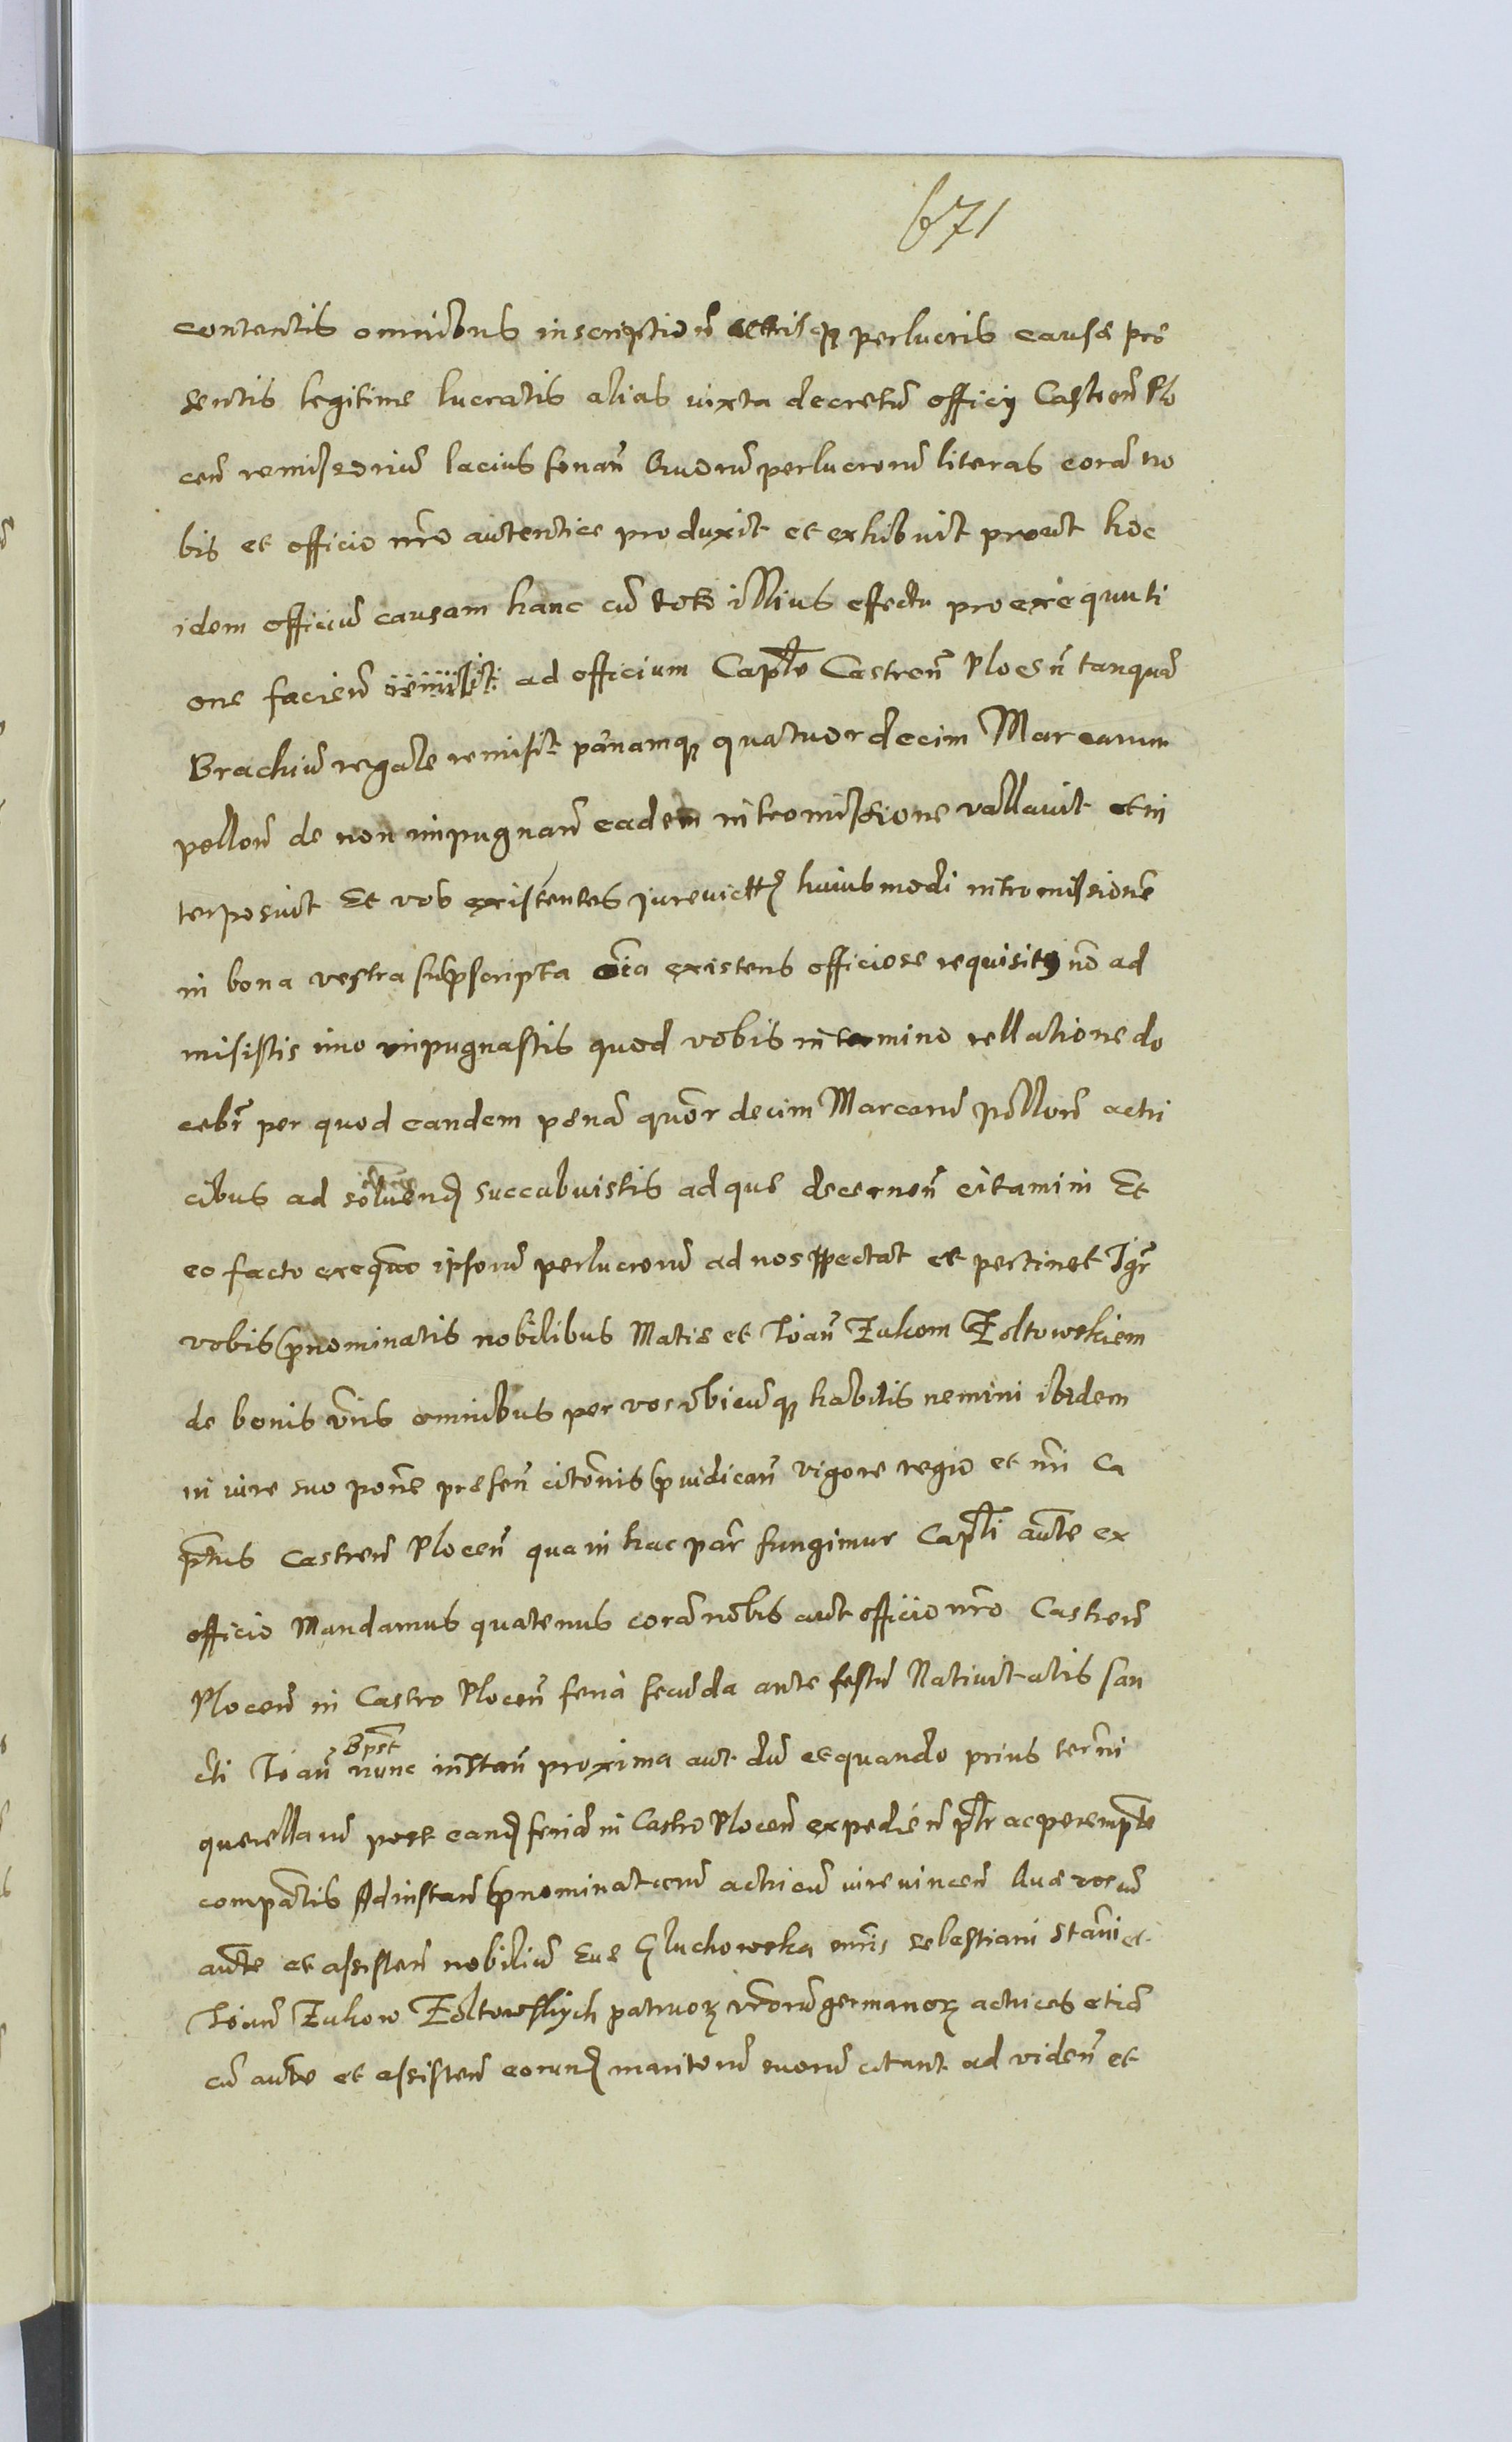 671
contentis omnibus inscriptioñ perlucris causæ præ
sentis legitime lucratis alias iuxta decretũ officij Castreñ Plo
ceñ remissoriũ lacius sonañ Quorũ perlucrorũ literas corã no
bis et officio nr̃o autentice produxit et exhibuit prout hoc
idem officiũ causam hanc cũ toto illius effectu pro exequuti
one facieñ ad officium Capłe Castreñ Ploceñ tanquã
Brachiũ regale remisit pænamq̢ quatuordecim Marcarum
polloñ de non impugnañ eadem intromissione vallavit et in
terposuit Et vos existentes iurevicti huiusmodi intromissionẽ
in bona vestra supscripta existens officiose requisitꝯ nõ ad
misistis imo impugnastis quod vobis in termino rellatione do
cebr̃ per quod eandem penã quõr decim Marcarũ polloñ actri
cibus ad solvend succubuistis ad quæ decerneñ citamini Et
eo facto exequõ ipsorũ perlucrorũ ad nos spectat et pertinet Igr̃
vobis p̃nominatis nobilibus Matie et Ioañ Zukom Zoltowskiem
de bonis vr̃is omnibus per vos ubicũq̢ habitis nemini ibidem
in iure suo põne præseñ citõnis p̃iudicañ vigore regio et nr̃i Ca
ptus Castreñ Ploceñ qua in hac par̃ fungimur Capłi aute ex
officio Mandamus quatenus corã nobis aut officio nr̃o Castreñ
Ploceñ in Castro Ploceñ feria secũda ante festũ Nativitatis san
Bpst
cti Ioañ nunc instañ proxima aut dũ et quando prius term̃i
querellarũ post eand feriã in Castro Ploceñ expedieñ pł̃r ac perempte
compatis Ad instañ p̃nominatarũ actricũ iurevinceñ Quæ vos cũ
aute et assisteñ nobiliũ Eve Gluchowska mr̃is Sebastiani Stañi et
Ioañ Zukow Zoltowskych patruoꝝ vr̃orũ germanoꝝ actrices etiã
cũ aute et assisteñ eorund maritorũ suorũ citant ad videñ et